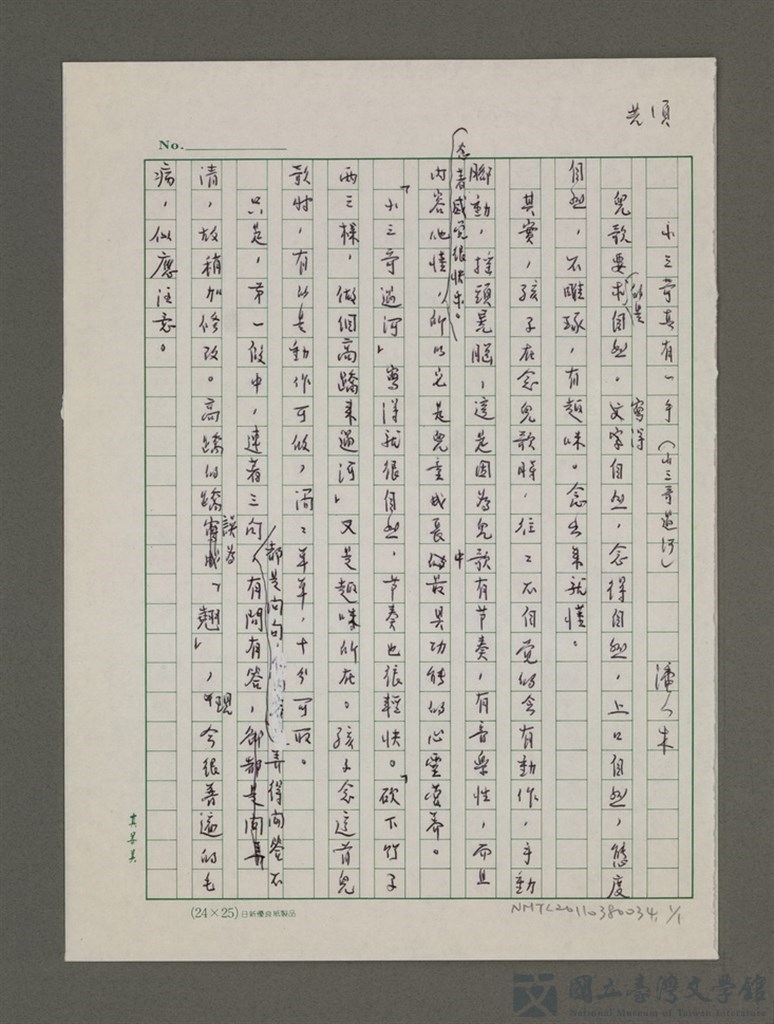 共 頁
No.
小三哥真有一手(小三哥過河) 潘人木
兒歌要求的是自然。文字寫得自然,念得自然,上口自然,態度
自然,不雕琢,有趣味。念出來就懂。
其實,孩子在念兒歌時,往往不自覺的會有動作,手動
腳動,搖頭晃腦,這是因為兒歌有节奏,有音樂性,而且
念着感覺很快乐。
內容他懂,所以它是兒童成長中最具功能的心靈營养。
「小三哥過河」寫得就很自然,节奏也很輕快。「砍下竹子
兩三棵,做個高蹻來過河」又是趣味所在。孩子念這首兒
歌时,有的是動作可做,十分可取。
只是,第一段中,連着三句都是问句,弄得问答不
清,故稍加修改。高蹻的蹻誤為「翹」,現今很普遍的毛
病,似應注意。
(24×25)日新優良紙製品
NMTL20110380034, 1/1
國立臺灣文學館
National Museum of Taiwan Literature